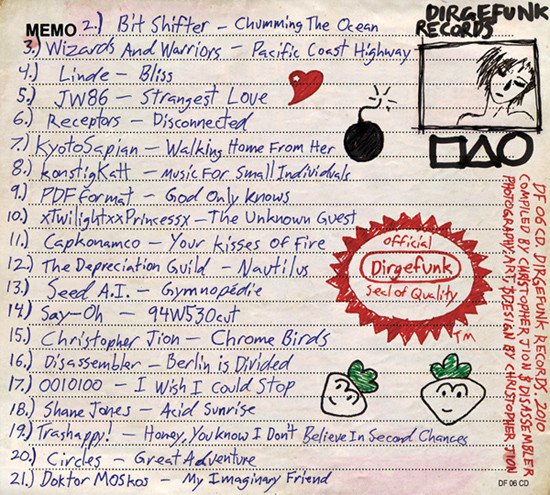 MEMO
2.) Bit Shifter - Chumming The Ocean
3.) Wizards And Warriors - Pacific Coast Highway
4.) Linde - Bliss
5.) JW86 - Strangest Love
6.) Receptors - Disconnected
7.) KyotoSapian - Walking Home From Her
8.) konstigKatt - Music For Small Individuals
9.) PDF format - God Only Knows
10.) xTwilightxxPrincessx - The Unknown Guest
11.) Capkonamco - Your Kisses of Fire
12.) The Depreciation Guild - Nautilus
13.) Seed A.I. - Gymnopédie
14.) Say-Oh - 94W530cut
15.) Christopher Jion - Chrome Birds
16.) Disassembler - Berlin is Divided
17.) 0010100 - I Wish I Could Stop
18.) Shane Jones - Acid Sunrise
19.) Trashappy! - Honey, You Know I Don't Believe In Second Chances
20.) Circles - Great Adventure
21.) Doktor Moskos - My Imaginary Friend
DIRGEFUNK
RECORDS
official
Dirgefunk
Seal of Quality
TM
DF 06 CD. DIRGEFUNK RECORDS. 2010
COMPILED BY CHRISTOPHER JION & DISASSEMBLER
PHOTOGRAPHY, ART, & DESIGN BY CHRISTOPHER JION
DF 06 CD